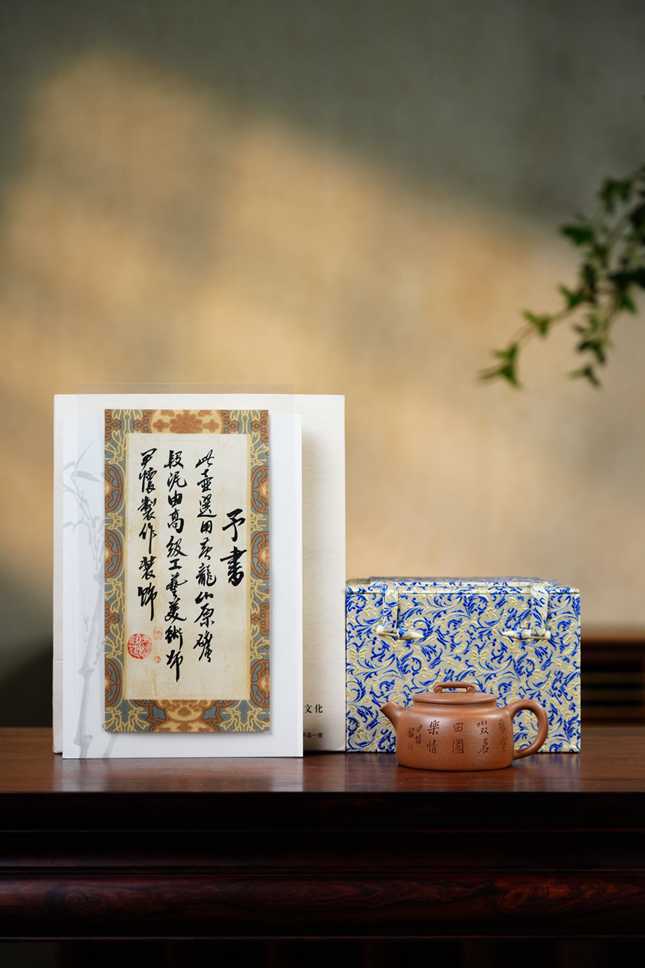 予書
此壶選用黃龍山原礦
段泥由高级工藝美術师
尹懷製作装饰
文化
田園
樂情